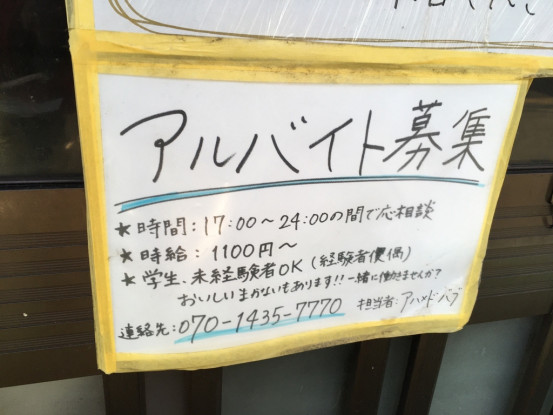 アルバイト募集
★時間：17:00〜24:00の間で応相談
★時給：1100円〜
★学生、未経験者OK（経験者優偶）
おいしいまかないもあります!! 一緒に働きませんか？
連絡先：070-1435-7770 担当者：アハメド・バブ